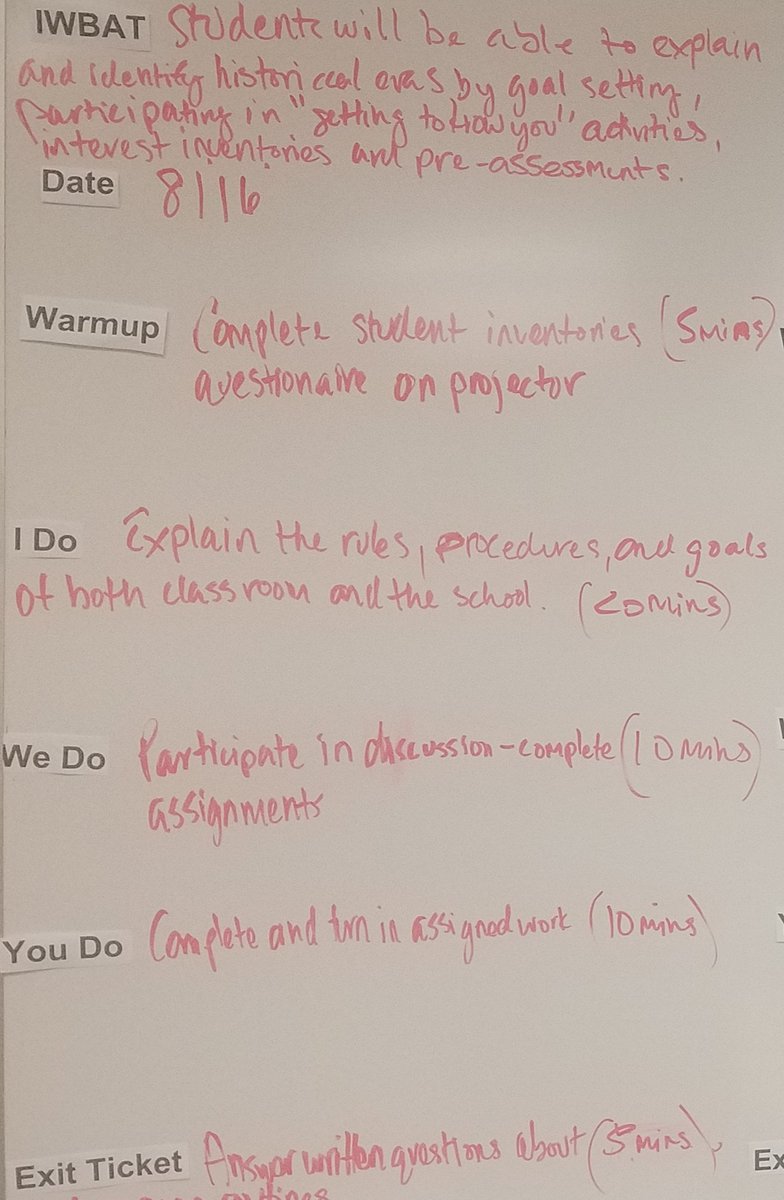 IWBAT Students will be able to explain
and identify historical eras by goal setting,
participating in "getting to know you" activities,
interest inventories and pre-assessments.
Date 8/16
Warmup Complete student inventories (5mins)
questionaire on projector
I Do Explain the rules, procedures, and goals
of both classroom and the school. (20mins)
We Do Participate in discussion-complete (10mins)
assignments
You Do Complete and turn in assigned work (10mins)
Exit Ticket Answer written questions about (5mins)
Ex